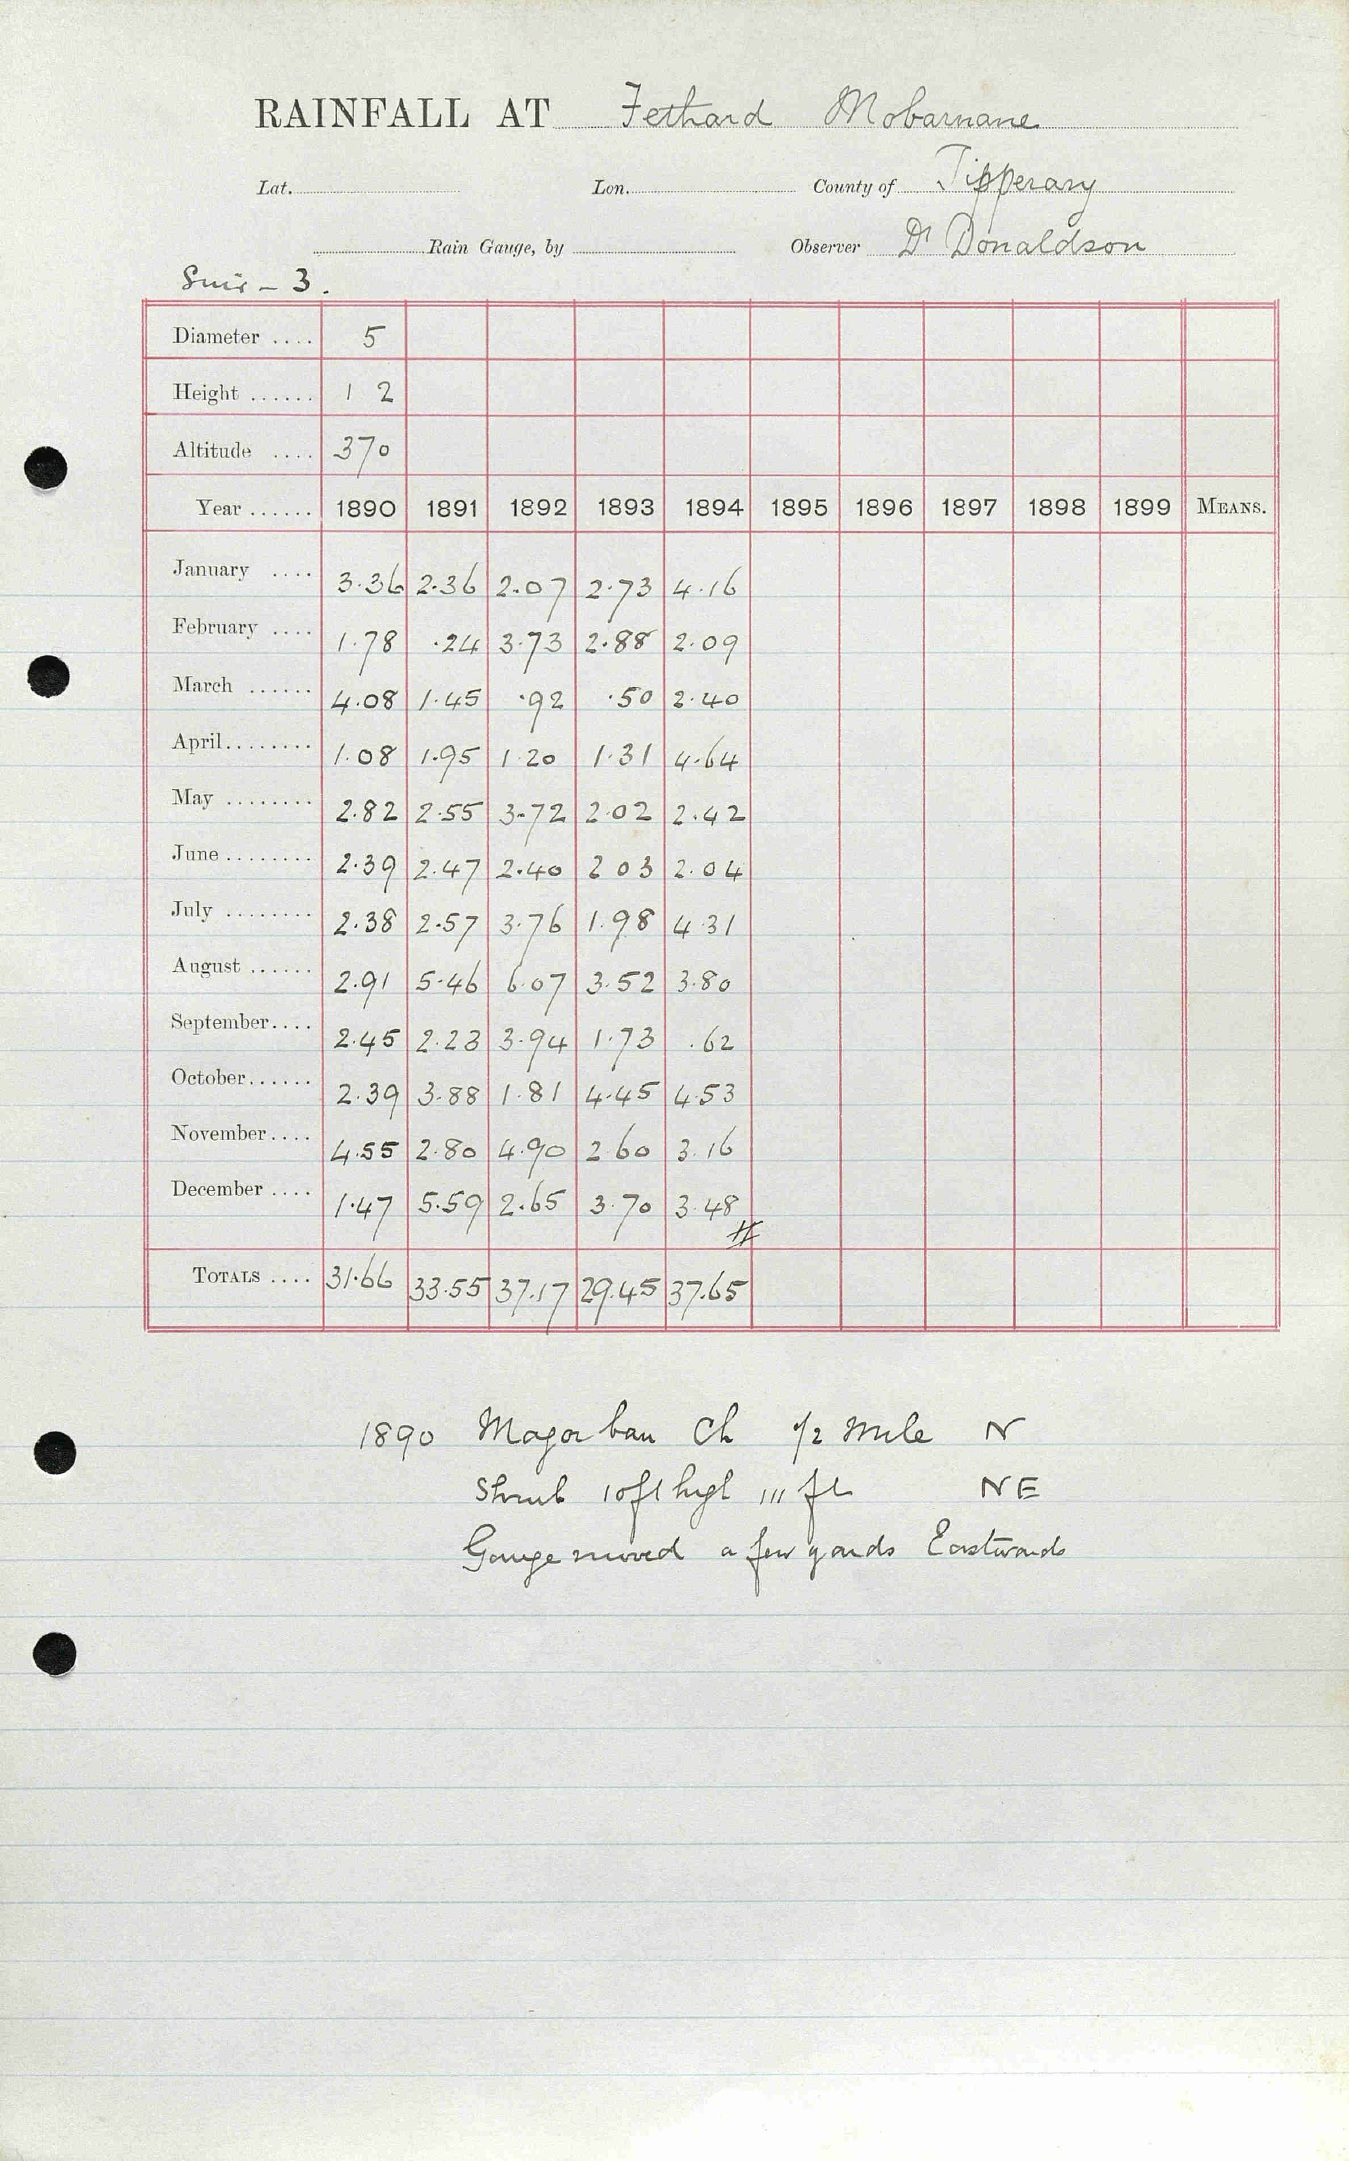 RAINFALL AT Fethard Mobarnane
Lat. Lon. County of Tipperary
Rain Gauge, by Observer Dr Donaldson
Suir - 3.
Diameter .... 5
Height ...... 1 2
Altitude .... 370
Year ...... 1890 1891 1892 1893 1894 1895 1896 1897 1898 1899 MEANS.
January .... 3.36 2.36 2.07 2.73 4.16
February .... 1.78 .24 3.73 2.88 2.09
March ...... 4.08 1.45 .92 .50 2.40
April........ 1.08 1.95 1.20 1.31 4.64
May ........ 2.82 2.55 3.72 2.02 2.42
June ........ 2.39 2.47 2.40 2 03 2.04
July ........ 2.38 2.57 3.76 1.98 4.31
August ...... 2.91 5.46 6.07 3.52 3.80
September.... 2.45 2.23 3.94 1.73 .62
October...... 2.39 3.88 1.81 4.45 4.53
November.... 4.55 2.80 4.90 2.60 3.16
December .... 1.47 5.59 2.65 3.70 3.48
TOTALS .... 31.66 33.55 37.17 29.45 37.65
1890 Magorban Ch 1/2 Mile N
Shrub 10ft high 111 ft NE
Gauge moved a few yards Eastwards